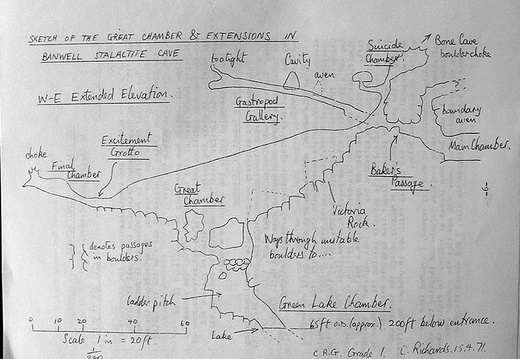 SKETCH OF THE GREAT CHAMBER & EXTENSIONS IN
BANWELL STALACTITE CAVE
W-E Extended Elevation.
too tight
Cavity
aven
Gastropod
Gallery.
Suicide
Chamber
Bone Cave
boulder choke
boundary
aven
Main Chamber.
Baker's
Passage.
-9-
Excitement
Grotto
choke
Final
Chamber
Great
Chamber
Victoria
Rock.
Ways through unstable
boulders to....
denotes passages
in boulders.
ladder pitch
Lake
Green Lake Chamber.
65ft O.D. (approx.) 200ft below entrance.
0 10 20 40 60
Scale 1 in = 20ft.
C.R.G. Grade 1. C. Richards. 15.4.71.